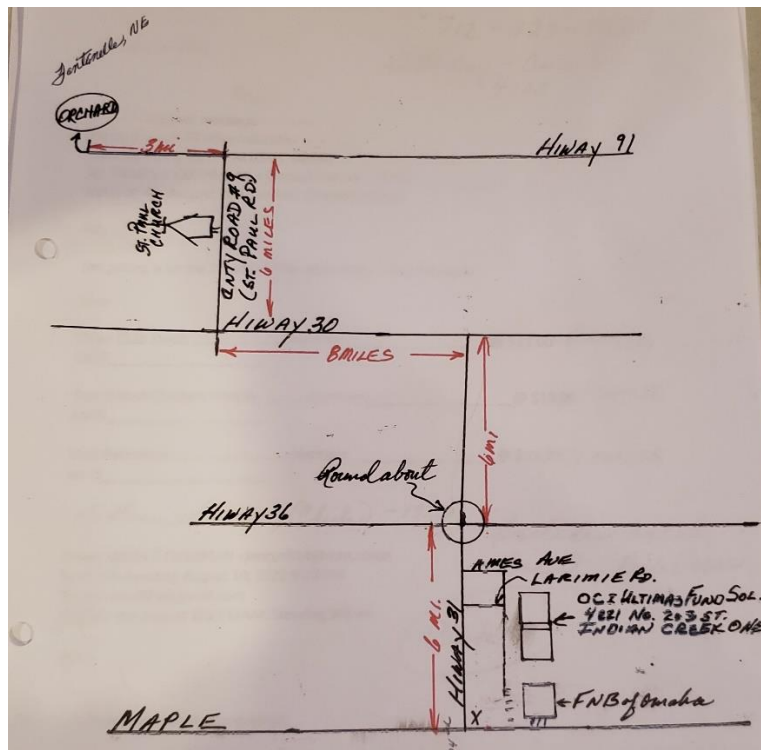 Fontanelle, NE
ORCHARD
3mi
HIWAY 91
ST. PAUL
CHURCH
CNTY ROAD #9
(ST. PAUL RD)
6 MILES
HIWAY 30
8MILES
6MI
Roundabout
HIWAY 36
AMES AVE
LARIMIE RD.
OCI ULTIMA3 FUND SOL.
4221 NO. 203 ST.
INDIAN CREEK ONE
6 MI.
HIWAY 31
FNB of Omaha
MAPLE
X